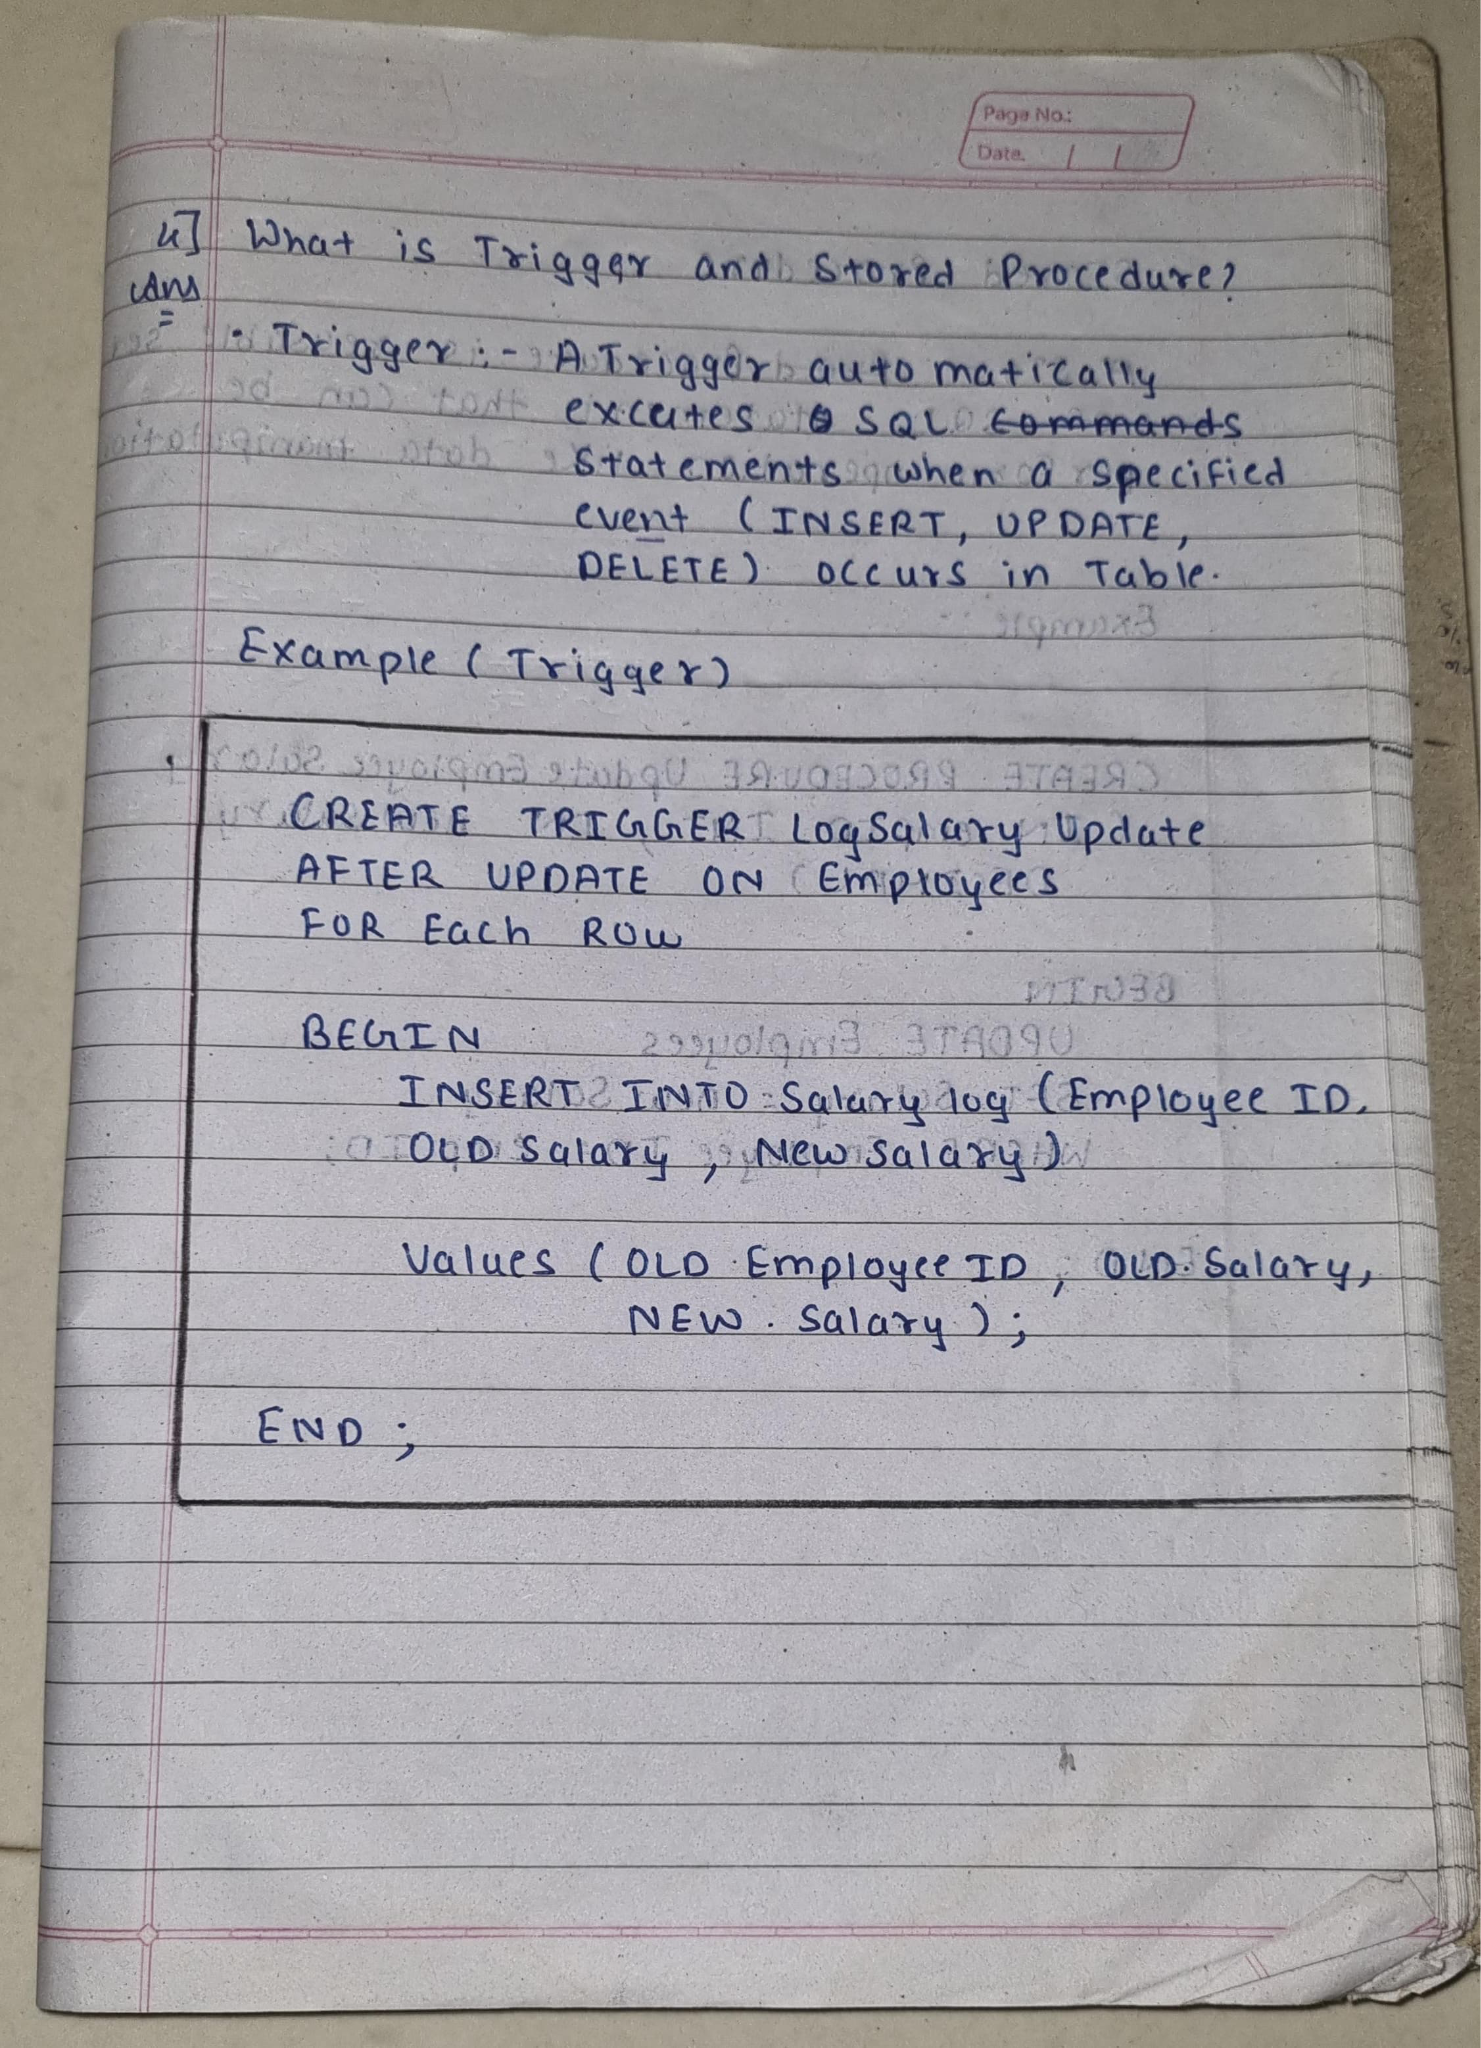 Page No.:
Date. / /
4] What is Trigger and Stored Procedure?
Ans
• Trigger :- A Trigger automatically
excutes SQL commands
Statements when a specified
event (INSERT, UPDATE,
DELETE) occurs in Table.
Example (Trigger)
CREATE TRIGGER LogSalary Update
AFTER UPDATE ON Employees
FOR Each ROW
BEGIN
INSERT INTO Salary log (Employee ID,
OLD Salary, New Salary)
Values (OLD.Employee ID, OLD.Salary,
NEW.Salary);
END;